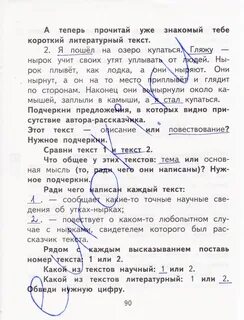 А теперь прочитай уже знакомый тебе
короткий литературный текст.
2. Я пошёл на озеро купаться. Гляжу —
нырок учит своих утят уплывать от людей. Ны-
рок плывёт, как лодка, а они ныряют. Они
нырнут, а он на то место приплывёт и глядит
по сторонам. Наконец они вынырнули около ка-
мышей, заплыли в камыши, а я стал купаться.
Подчеркни предложения, в которых видно при-
сутствие автора-рассказчика.
Этот текст — описание или повествование?
Нужное подчеркни.
Сравни текст 1 и текст 2.
Что общего у этих текстов: тема или основ-
ная мысль (то, ради чего они написаны)? Нуж-
ное подчеркни.
Ради чего написан каждый текст:
1 — сообщает какие-то точные научные све-
дения об утках-нырках;
2 — повествует о каком-то любопытном случае
с нырками, свидетелем которого был рас-
сказчик текста.
Рядом с каждым высказыванием поставь
номер текста: 1 или 2.
Какой из текстов научный: 1 или 2.
Какой из текстов литературный: 1 или 2.
Обведи нужную цифру.
90